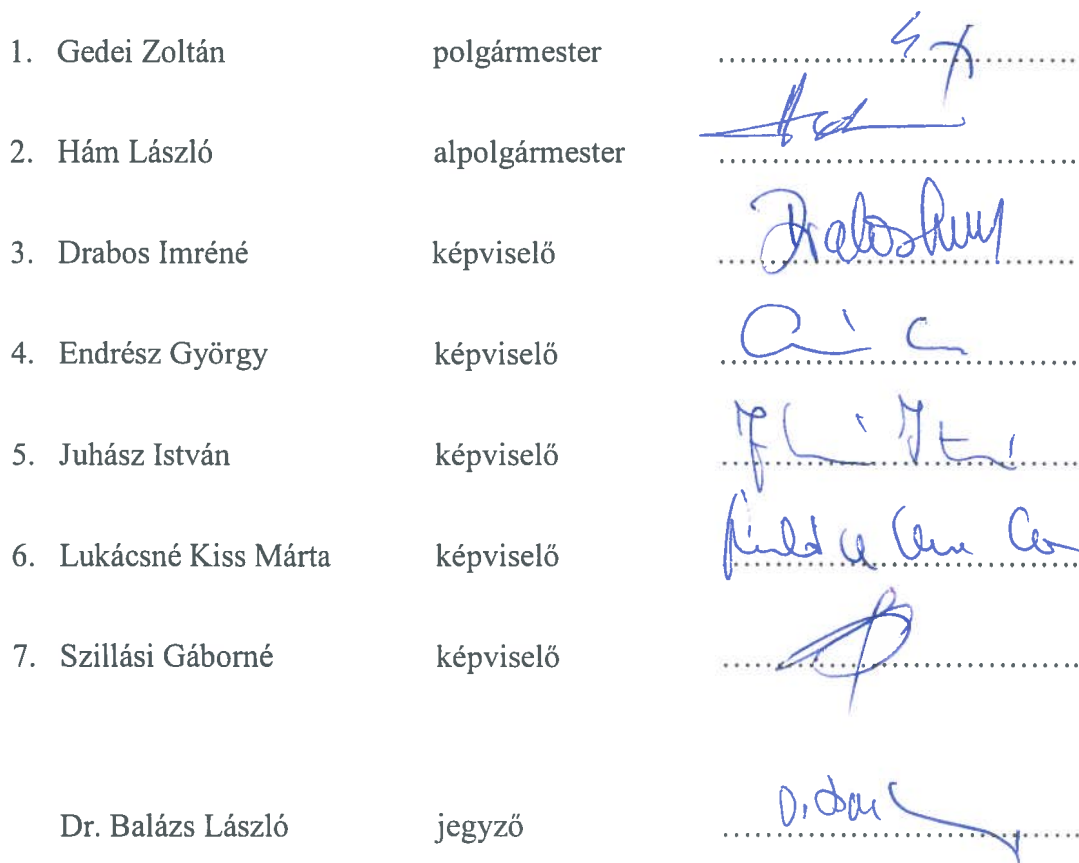 1. Gedei Zoltán polgármester
2. Hám László alpolgármester
3. Drabos Imréné képviselő
4. Endrész György képviselő
5. Juhász István képviselő
6. Lukácsné Kiss Márta képviselő
7. Szillási Gáborné képviselő
Dr. Balázs László jegyző